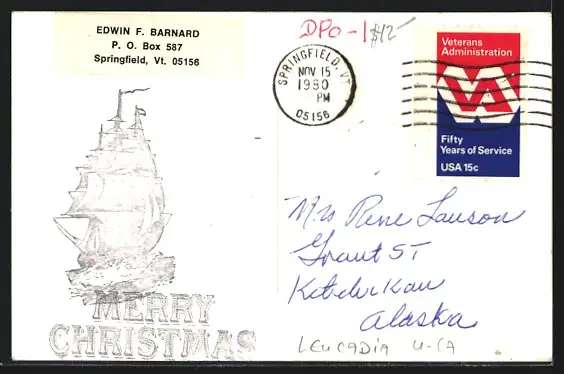 EDWIN F. BARNARD
P. O. Box 587
Springfield, Vt. 05156
DPO - 1 $12-
SPRINGFIELD, VT
NOV 15
1980
PM
05156
Veterans
Administration
VA
Fifty
Years of Service
USA 15c
Mrs Rene Lawson
Grant ST
Ketchikan
Alaska
LEUCADIA
MERRY
CHRISTMAS